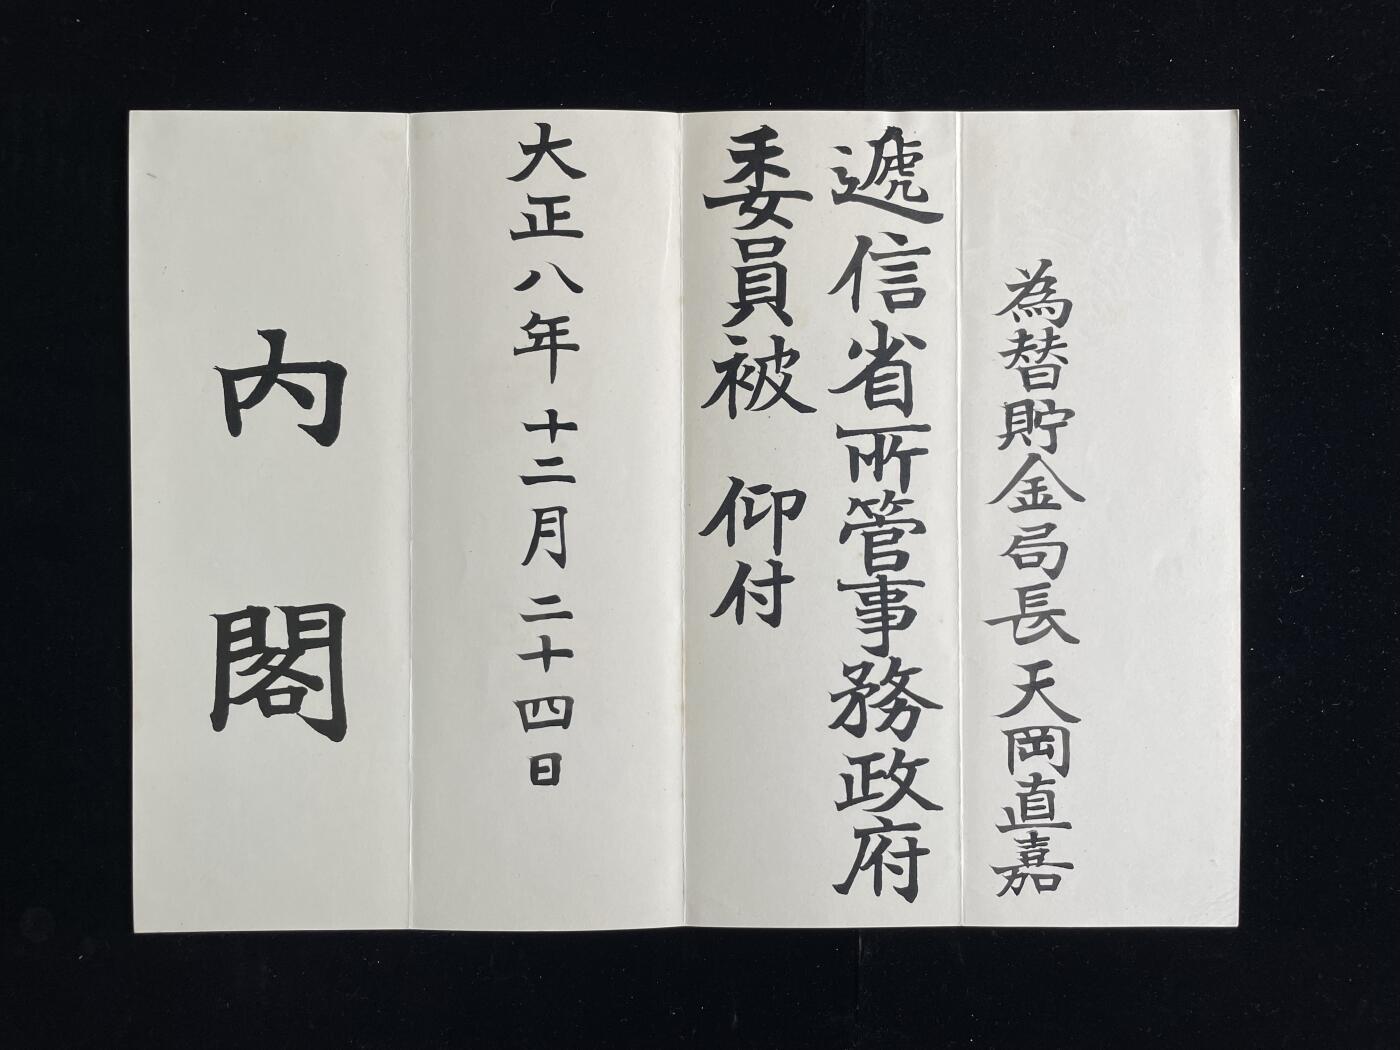 為替貯金局長天岡直嘉
遞信省所管事務政府
委員被 仰付
大正八年十二月二十四日
内閣